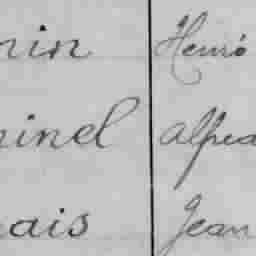 nin Henri
inel Alfred
ais Jean